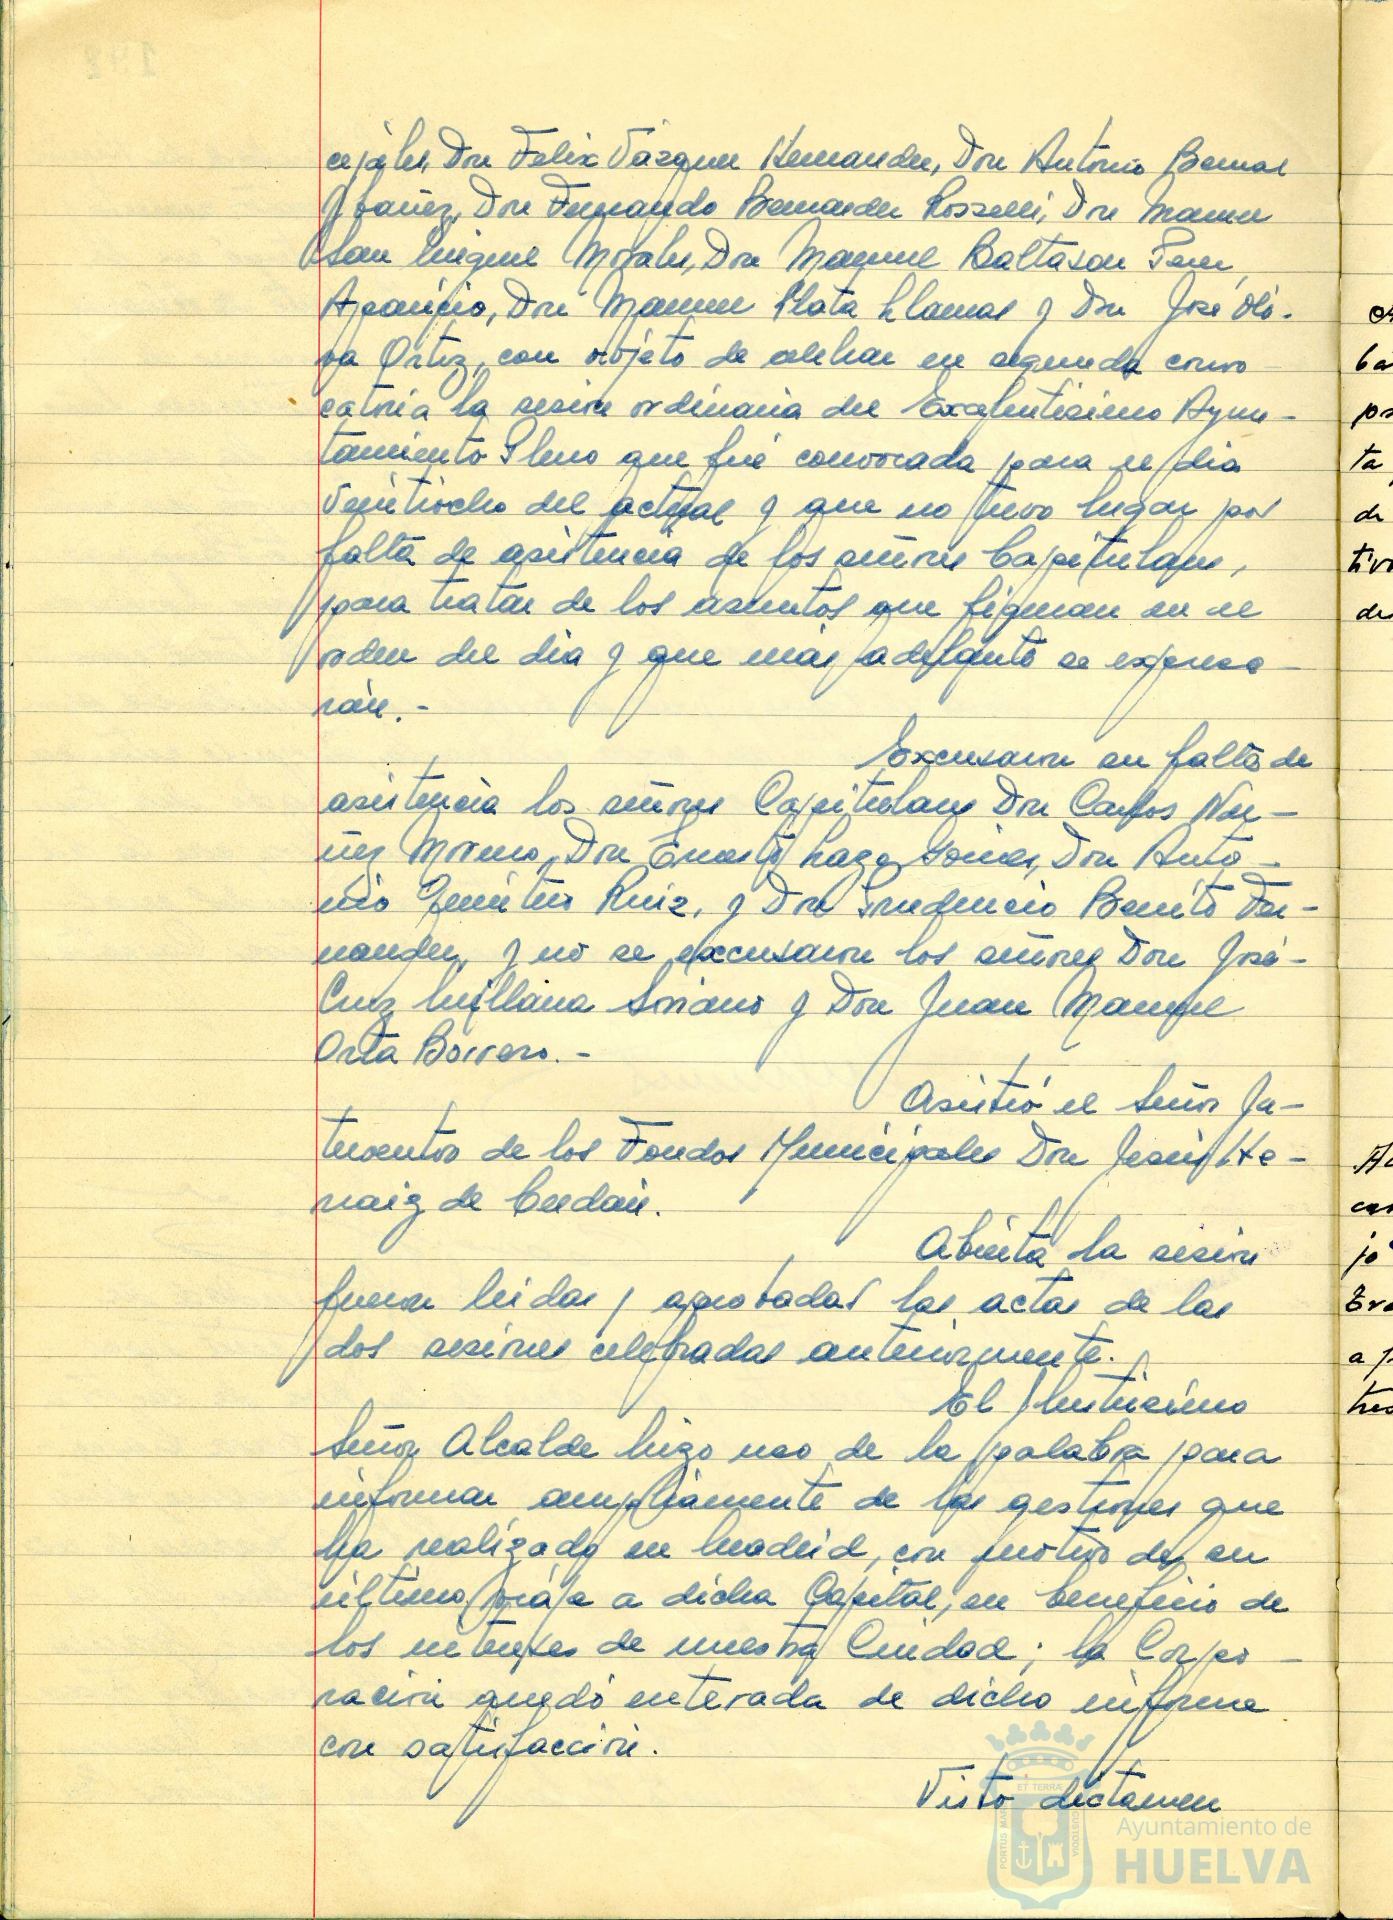 cejales, Don Felix Vázquez Hernandez, Don Antonio Bernal
Ybañez, Don Fernando Bermudez Rosselli, Don Manuel
San Miguel Morales, Don Manuel Baltasar Perez
Aparicio, Don Manuel Plata Llamas y Don José Oli-
va Ortiz, con objeto de celebrar en segunda convo-
catoria la sesion ordinaria del Excelentisimo Ayun-
tamiento Pleno que fué convocada para el dia
veintiocho del actual y que no tuvo lugar por
falta de asistencia de los señores Capitulares,
para tratar de los asuntos que figuran en el
orden del dia y que más adelante se expresa-
rán.-
Excusaron su falta de
asistencia los señores Capitulares Don Carlos Nu-
ñez Moreno, Don Ernesto Lazo Don Anto-
nio Ruiz, y Don Prudencio Benito Fer-
nandez, y no se excusaron los señores Don José-
Cruz Millana Soriano y Don Juan Manuel
Orta Borrero.-
Asistió el Señor In-
terventor de los Fondos Municipales Don Jesús He-
rnaiz de Cerdán.
Abierta la sesion
fueron leidas y aprobadas las actas de las
dos sesiones celebradas anteriormente.
El Ilustrisimo
Señor Alcalde hizo uso de la palabra para
informar ampliamente de las gestiones que
ha realizado en Madrid, con motivo de su
último viaje a dicha Capital, en beneficio de
los intereses de nuestra Ciudad; la Corpo-
racion quedó enterada de dicho informe
con satisfacción.
Visto dictamen
ET TERRÆ
PORTUS MARIS
CUSTODIA
Ayuntamiento de
HUELVA
ta
de
tivo
jo
a p
tres